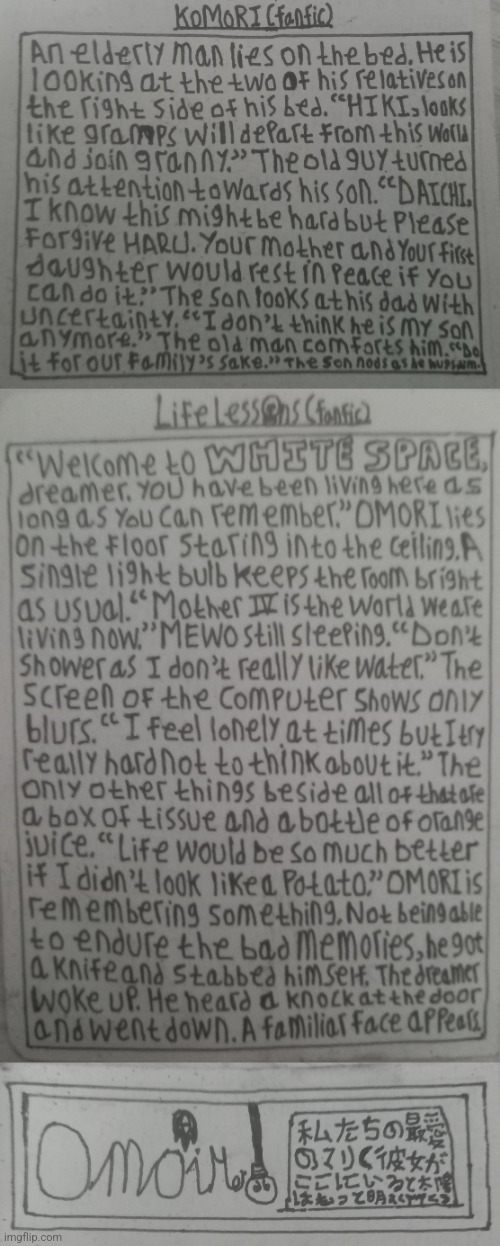 KOMORI (fanfic)
An elderly man lies on the bed. He is
looking at the two of his relatives on
the right side of his bed. "HIKI, looks
like gramps will depart from this world
and join granny." The old guy turned
his attention towards his son. "DAICHI,
I know this might be hard but please
forgive HARU. Your mother and your first
daughter would rest in peace if you
can do it." The son looks at his dad with
uncertainty. "I don't think he is my son
anymore." The old man comforts him. "Do
it for our family's sake." The son nods as he hugs him.
Life Lessons (fanfic)
"Welcome to WHITE SPACE,
dreamer. You have been living here as
long as you can remember." OMORI lies
on the floor staring into the ceiling. A
single light bulb keeps the room bright
as usual. "Mother IV is the world we are
living now." MEWO still sleeping. "Don't
shower as I don't really like water." The
screen of the computer shows only
blurs. "I feel lonely at times but I try
really hard not to think about it." The
only other things beside all of that are
a box of tissue and a bottle of orange
juice. "Life would be so much better
if I didn't look like a potato." OMORI is
remembering something. Not being able
to endure the bad memories, he got
a knife and stabbed himself. The dreamer
woke up. He heard a knock at the door
and went down. A familiar face appears.
Omoir
私たちの最愛
のマリく彼女が
ここにいると太陽
はもっと明
imgflip.com